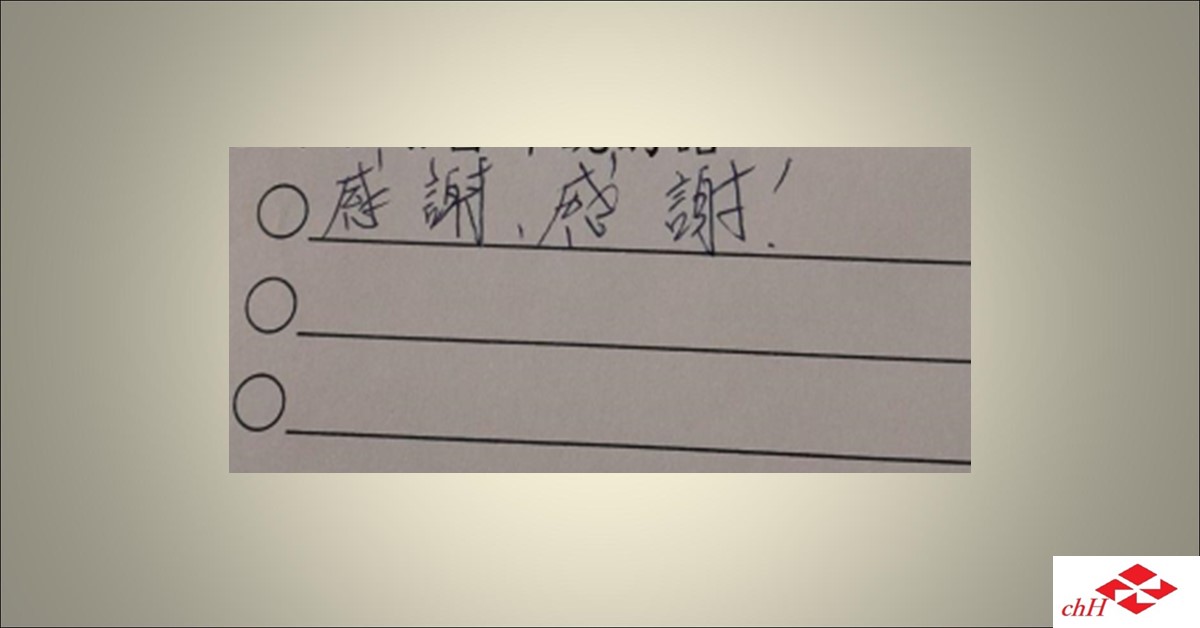 感謝、感謝!
chH